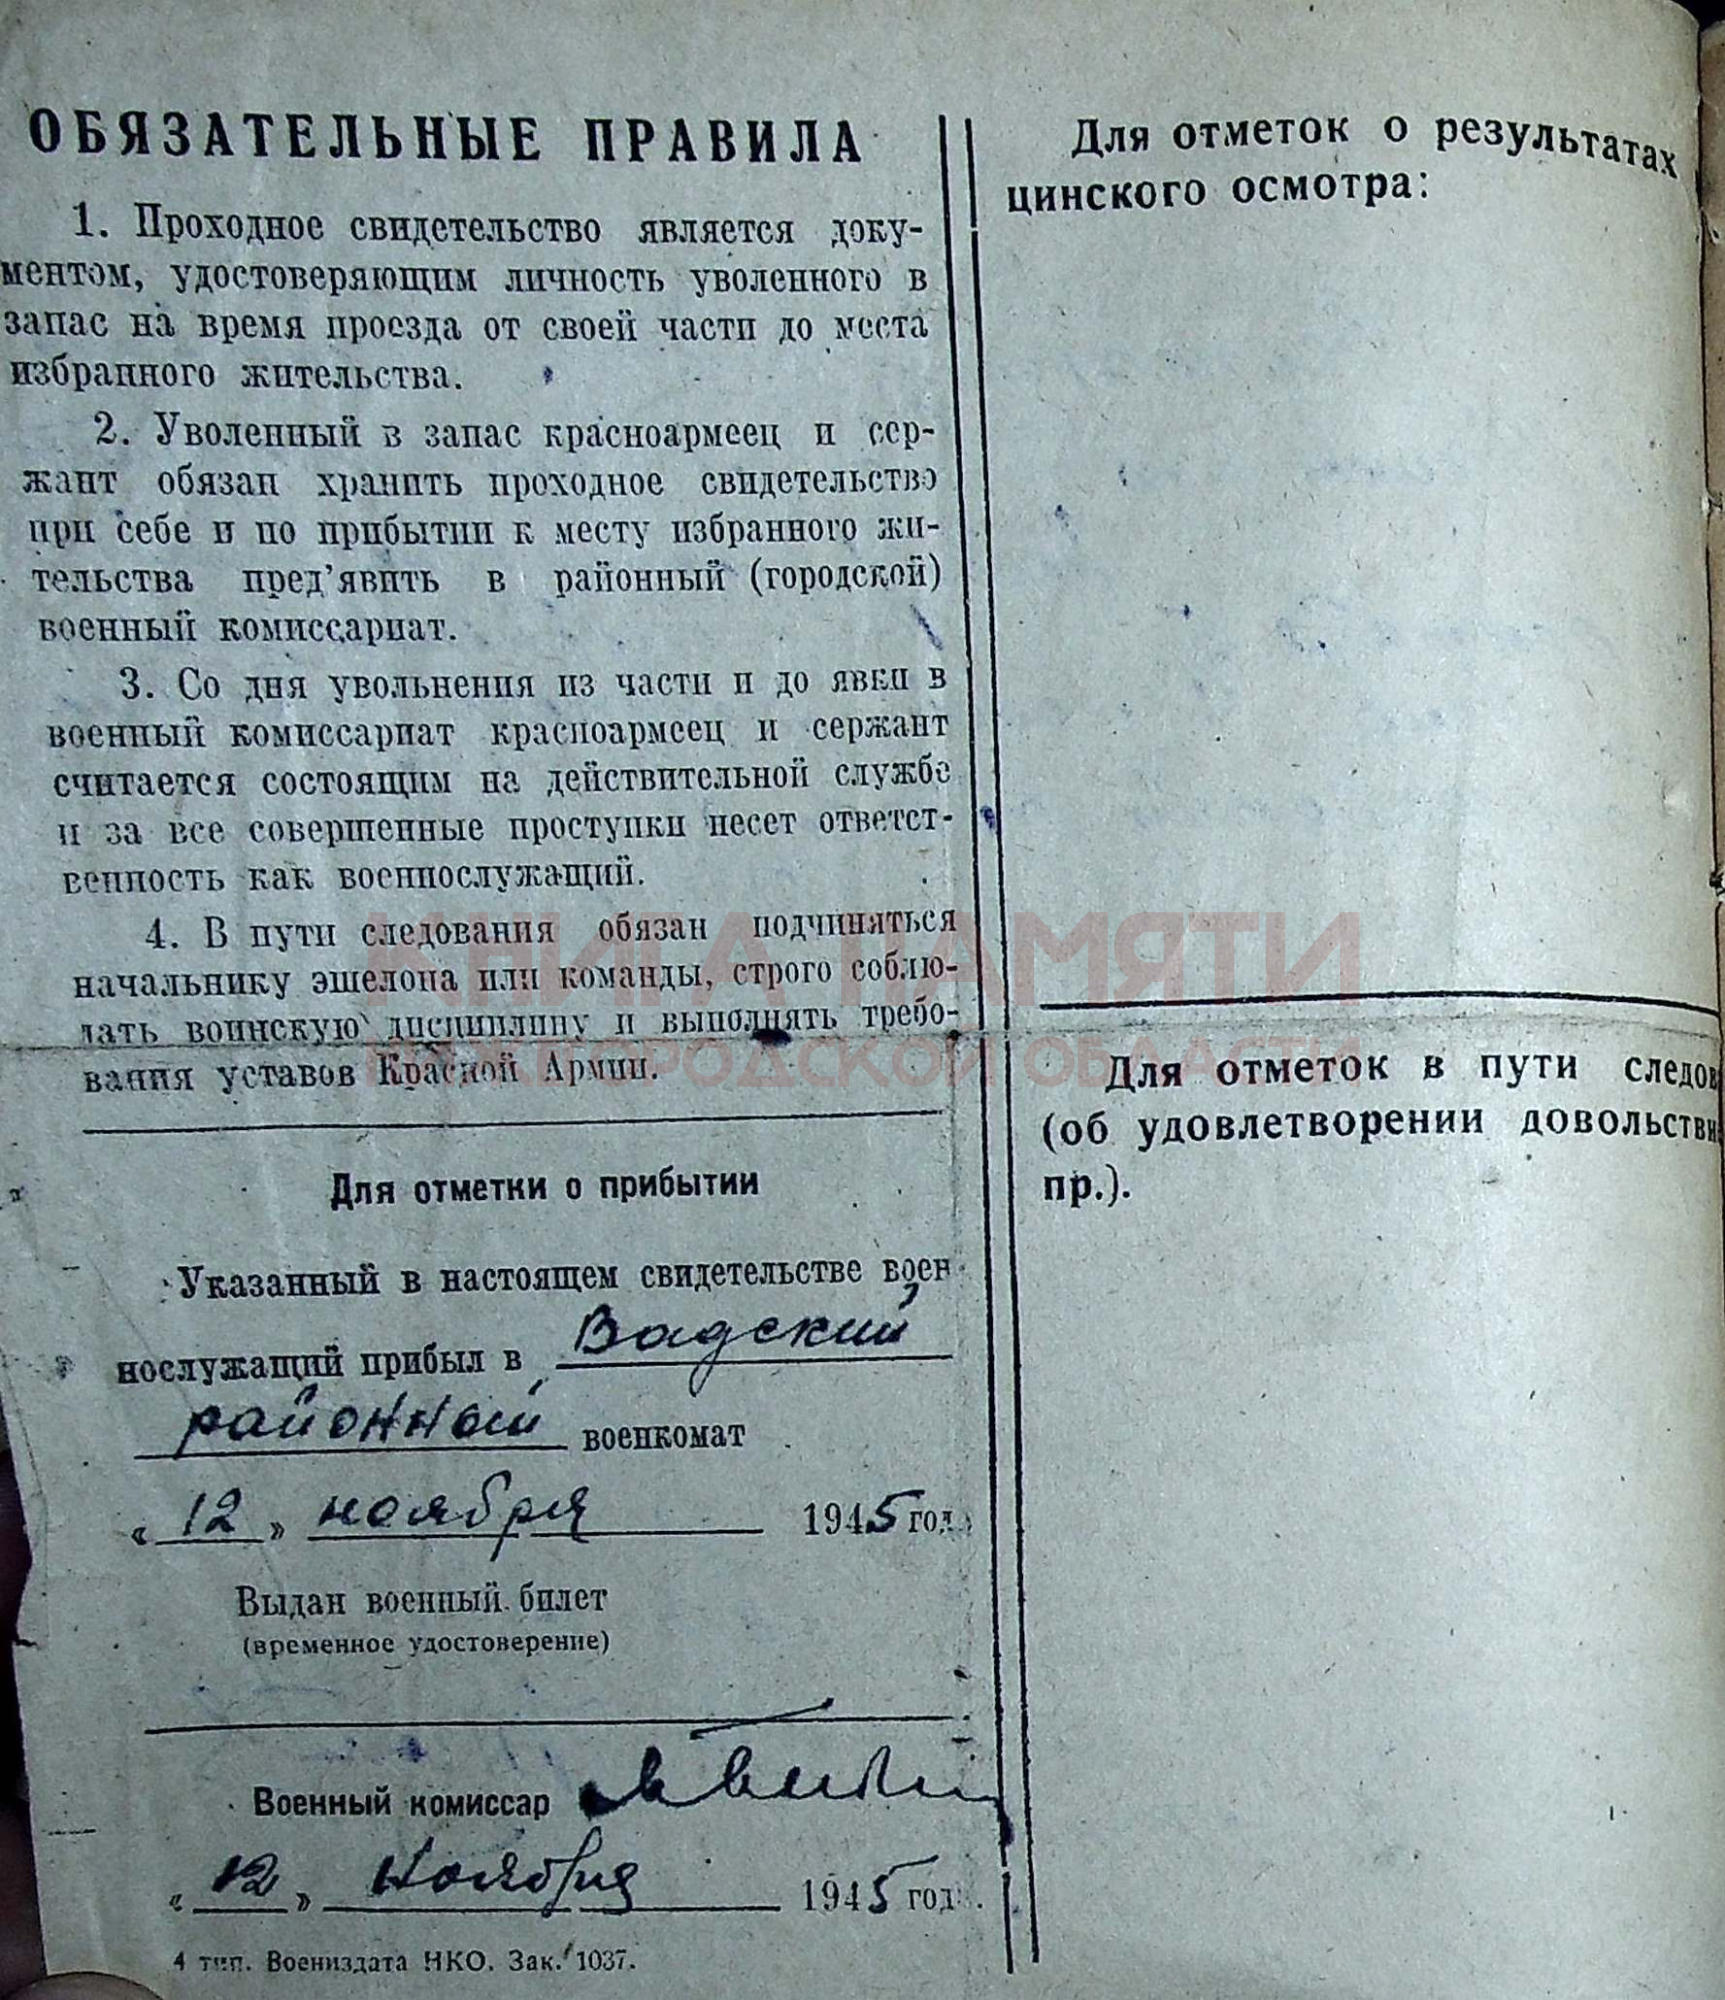 ОБЯЗАТЕЛЬНЫЕ ПРАВИЛА
1. Проходное свидетельство является доку-
ментом, удостоверяющим личность уволенного в
запас на время проезда от своей части до места
избранного жительства.
2. Уволенный в запас красноармеец и сер-
жант обязан хранить проходное свидетельство
при себе и по прибытии к месту избранного жи-
тельства пред'явить в районный (городской)
военный комиссариат.
3. Со дня увольнения из части и до явки в
военный комиссариат красноармеец и сержант
считается состоящим на действительной службе
и за все совершенные проступки несет ответст-
венность как военнослужащий.
4. В пути следования обязан подчиняться
начальнику эшелона или команды, строго соблю-
дать воинскую дисциплину и выполнять требо-
вания уставов Красной Армии.
Для отметки о прибытии
Указанный в настоящем свидетельстве воен-
нослужащий прибыл в Вадский
районный военкомат
«12» ноября 1945 год
Выдан военный билет
(временное удостоверение)
Военный комиссар
«12» Ноября 1945 год
4 тип. Воениздата НКО. Зак. 1037.
Для отметок о результатах
цинского осмотра:
Для отметок в пути следов
(об удовлетворении довольстви
пр.).
КНИГА ПАМЯТИ
НИЖЕГОРОДСКОЙ ОБЛАСТИ